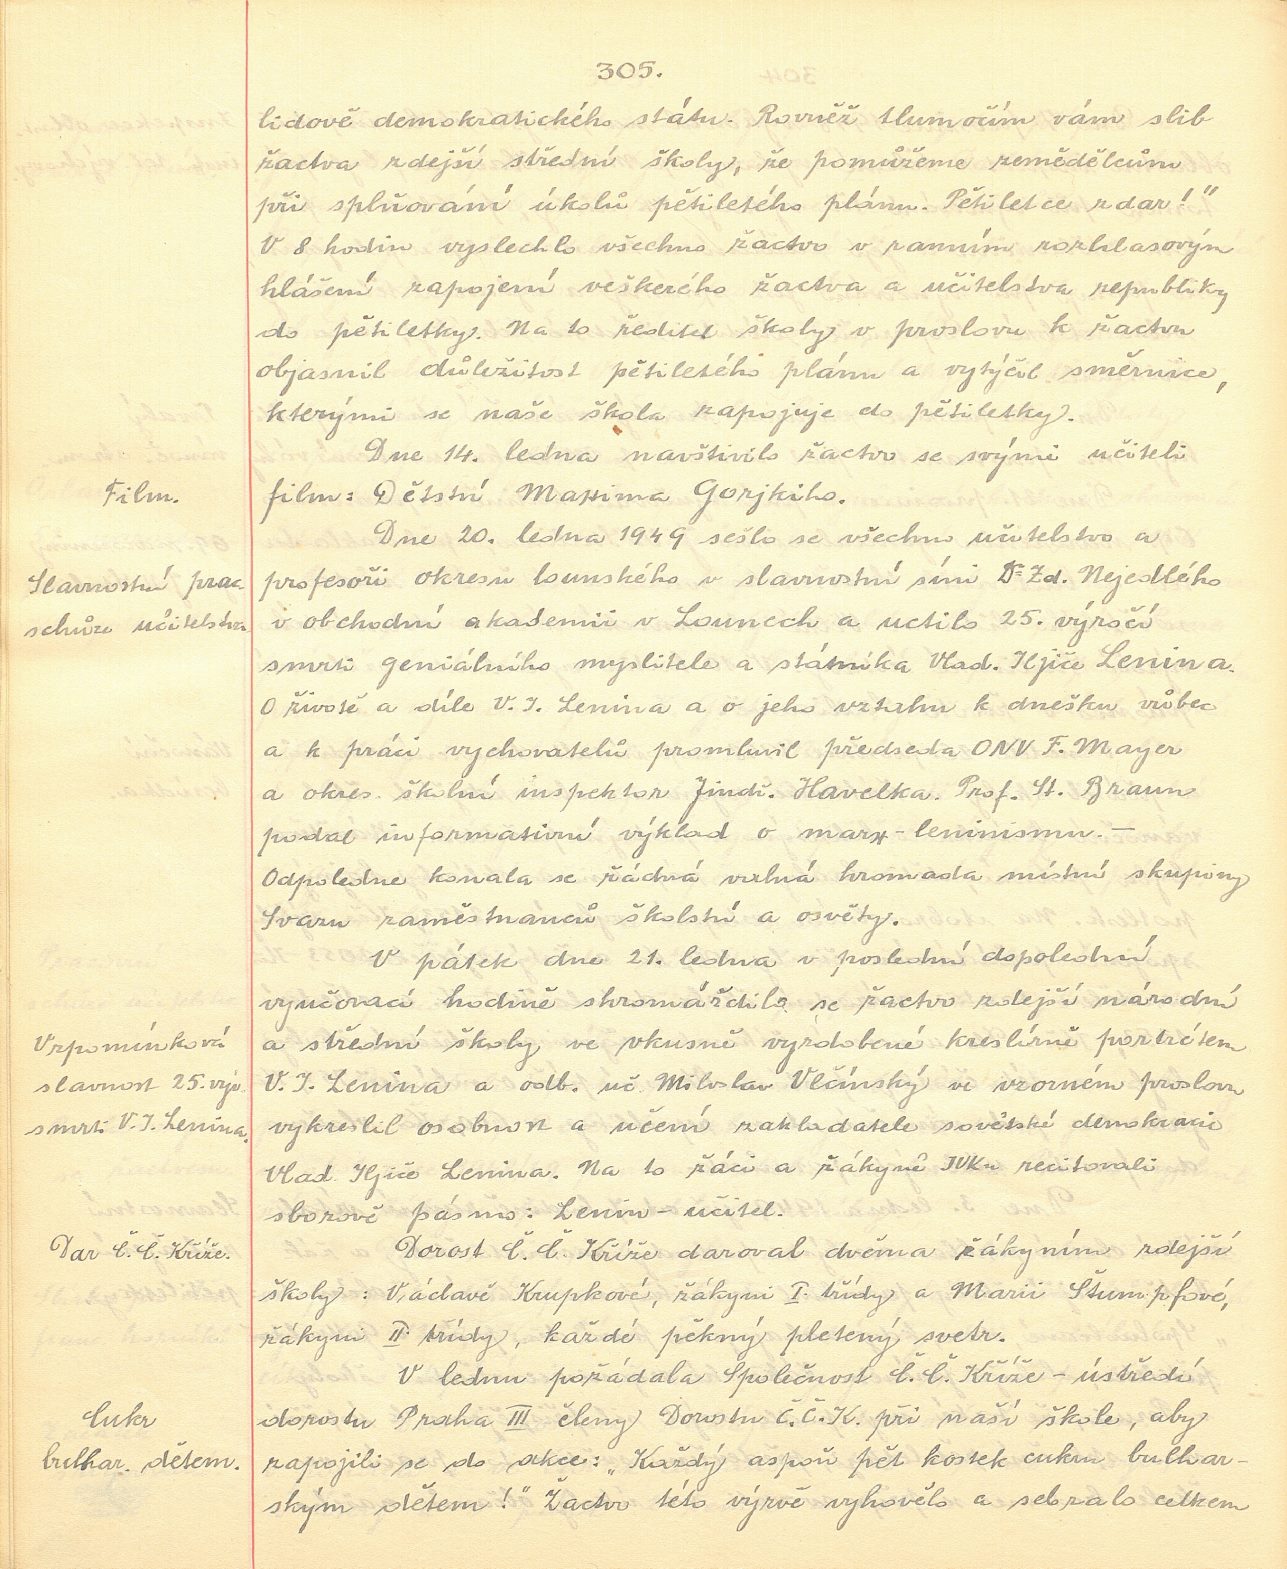 305.
lidově demokratického státu. Rovněž tlumočím vám slib
žactva zdejší střední školy, že pomůžeme zemědělcům
při splňování úkolů pětiletého plánu. Pětiletce zdar!"
V 8 hodin vyslechlo všechno žactvo v ranním rozhlasovým
hlášení zapojení veškerého žactva a učitelstva republiky
do pětiletky. Na to ředitel školy v proslovu k žactvu
objasnil důležitost pětiletého plánu a vytýčil směrnice,
kterými se naše škola zapojuje do pětiletky.
Dne 14. ledna navštívilo žactvo se svými učiteli
Film.
film: Dětství Maxima Gorjkiho.
Dne 20. ledna 1949 sešlo se všechno učitelstvo a
Slavnostní prac.
profesoři okresu lounského v slavnostní síni Dr Zd. Nejedlého
schůze učitelstva
v obchodní akademii v Lounech a uctilo 25. výročí
smrti geniálního myslitele a státníka Vlad. Iljiče Lenina.
O životě a díle V. I. Lenina a o jeho vztahu k dnešku vůbec
a k práci vychovatelů promluvil předseda ONV F. Mayer
a okres. školní inspektor Jindř. Havelka. Prof. St. Braun
podal informativní výklad o marx-leninismu. —
Odpoledne konala se řádná valná hromada místní skupiny
Svazu zaměstnanců školství a osvěty.
V pátek dne 21. ledna v poslední dopolední
vyučovací hodině shromáždilo se žactvo zdejší národní
Vzpomínková
a střední školy ve vkusně vyzdobené kreslírně portrétem
slavnost 25. výr.
V. I. Lenina a odb. uč. Miloslav Vlčínský ve vzorném proslovu
smrti V. I. Lenina.
vykreslil osobnost a učení zakladatele sovětské demokracie
Vlad. Iljiče Lenina. Na to žáci a žákyně IVKu recitovali
sborově pásmo: Lenin – učitel.
Dar Č. Č. Kříže.
Dorost Č. Č. Kříže daroval dvěma žákyním zdejší
školy: Václavě Krupkové, žákyni I. třídy a Marii Štumpfové,
žákyni II. třídy, každé pěkný pletený svetr.
V lednu požádala Společnost Č. Č. Kříže – ústředí
Cukr
dorostu Praha III členy Dorostu Č. Č. K. při naší škole, aby
bulhar. dětem.
zapojili se do akce: „Každý aspoň pět kostek cukru bulhar-
ským dětem!" Žactvo této výzvě vyhovělo a sebralo celkem